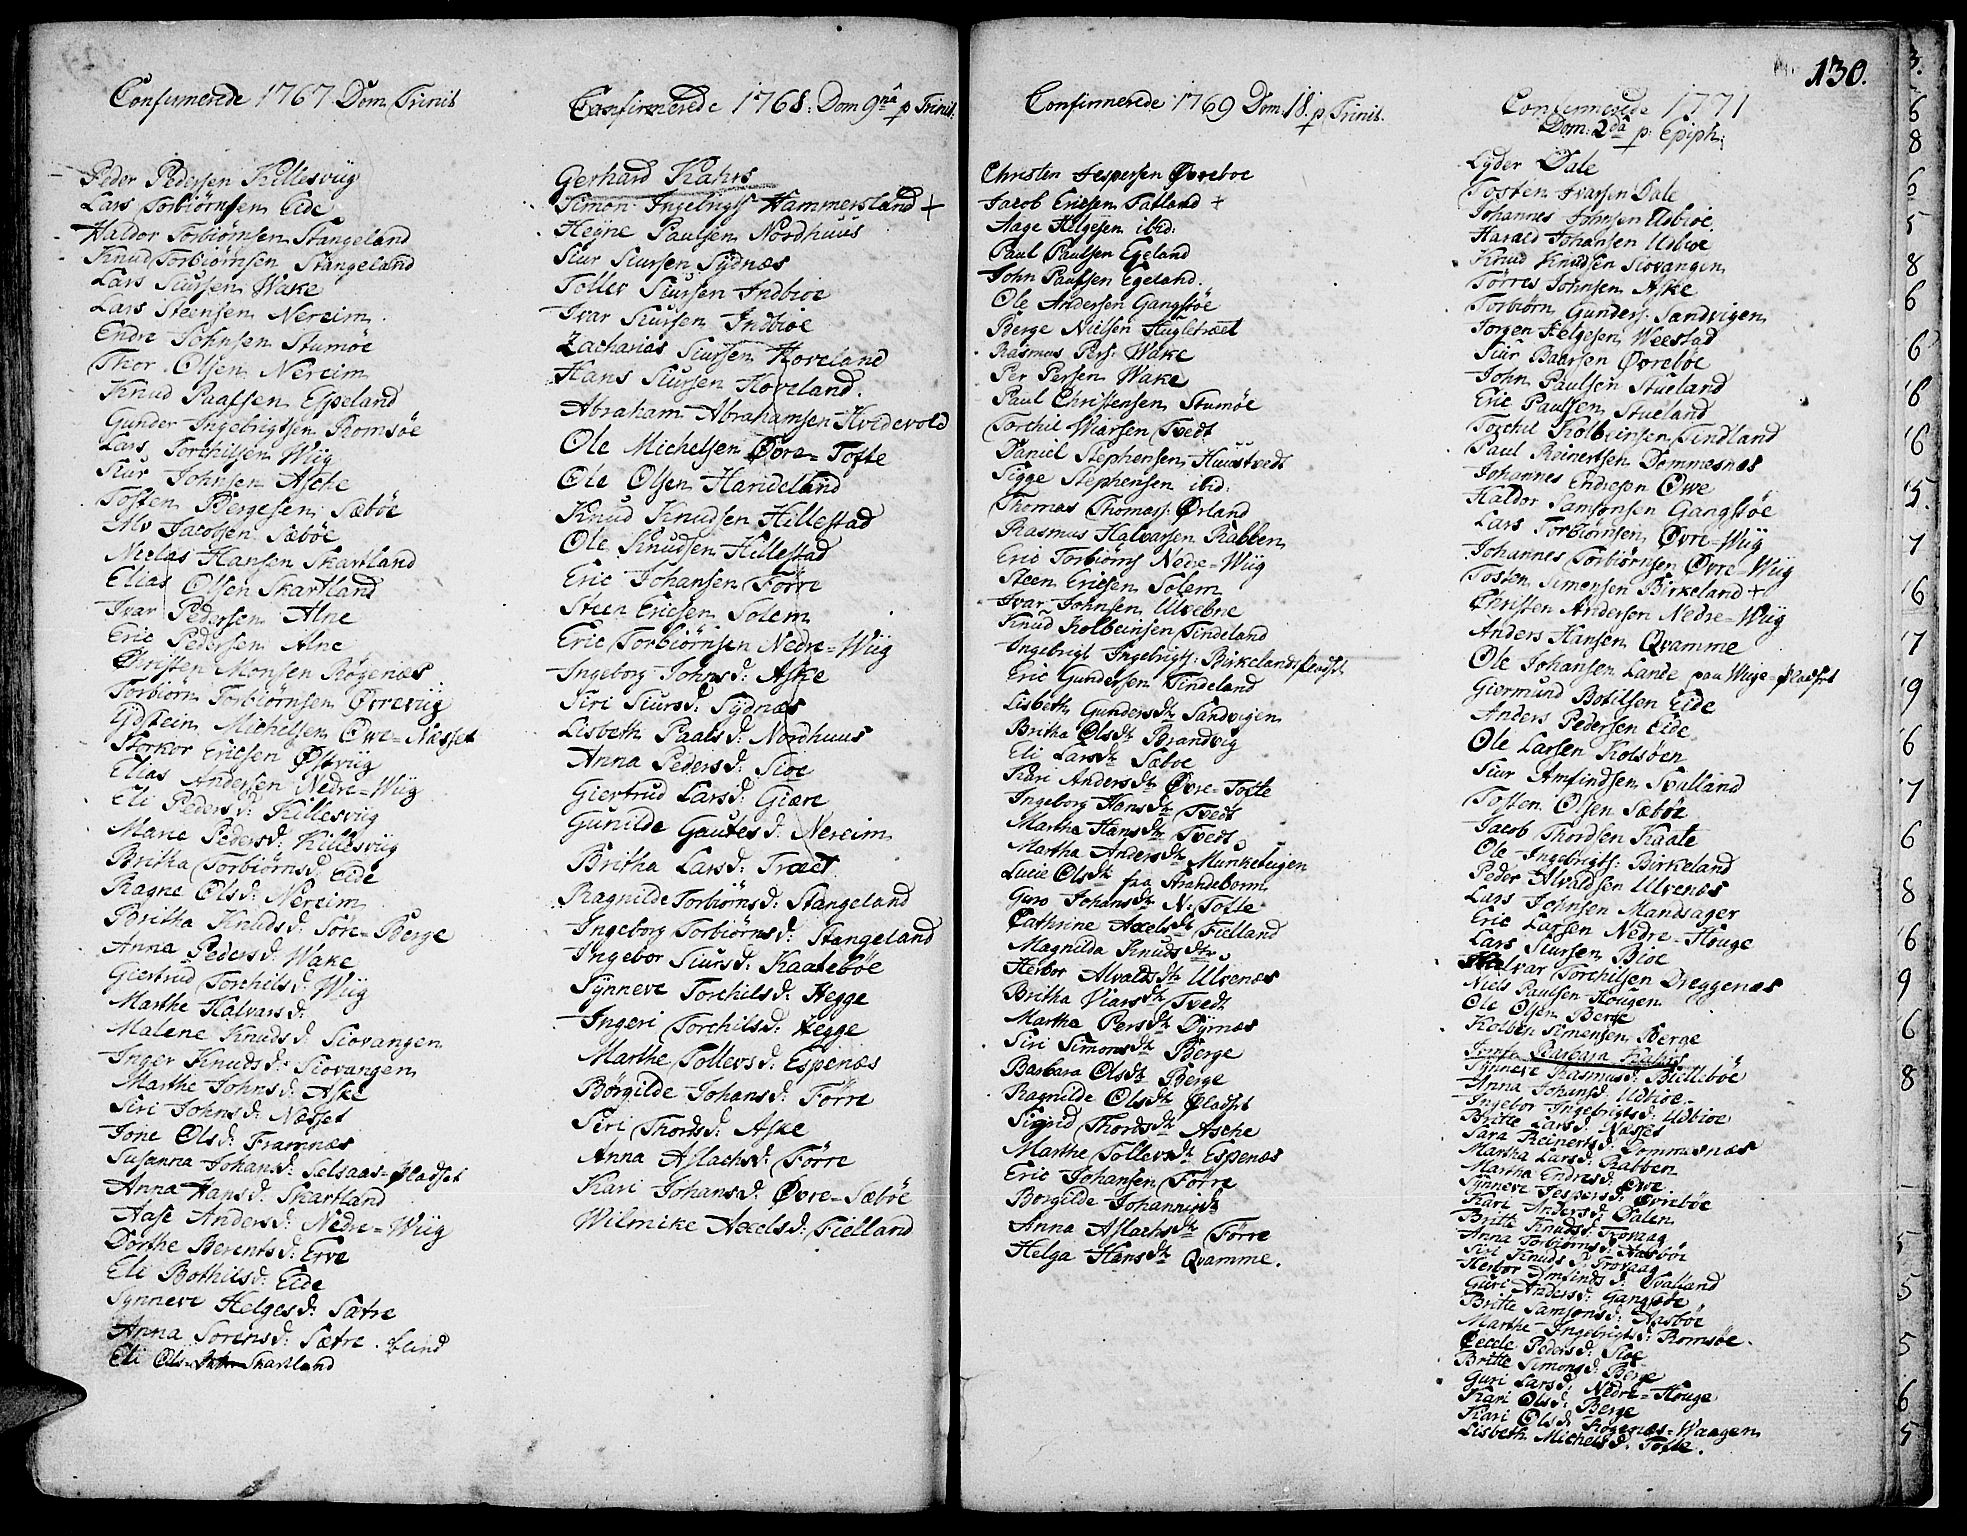 Confirmerede 1767 Dom. Trinit
Peder Pedersen Killesviig
Lars Torbiørnsen Eide
Haldor Torbiørnsen Stangeland
Knud Torbiørnsen Stangeland
Lars Siursen Wake
Lars Steensen Nereim
Endre Johnsen Stumøe
Thor Olsen Nereim
Knud Paalsen Espeland
Gunder Ingebrigtsen Romsøe
Lars Torchilsen Wiig
Siur Johnsen Asche
Tosten Bergesen Sæbøe
Alv Jacobsen Sæbøe
Niclas Hansen Skartland
Elias Olsen Skartland
Ivar Pedersen Alne
Eric Pedersen Alne
Christen Monsen Røgenæs
Torbiørn Torbiørnsen Øvreviig
Gdstein Michelsen Owe=Næsset
Storkor Ericsen Østviig
Elias Andersen Nedre=Wiig
Eli Pedersd: Killesviig
Marie Pedersd: Killesviig
Britha Torbiørnsd: Eide
Ragne Olsd: Nereim
Britha Knudsd: Søre=Berge
Anna Pedersd: Wake
Giertrud Torchilsd: Wiig
Marthe Halvarsd:
Malene Knudsd: Siovangen
Inger Knudsd: Siovangen
Marthe Johnsd: Aske
Siri Johnsd: Næsset
Jone Olsd: Framnæs
Susanna Johansd: Salsaas=Pladset
Anna Hansd: Skartland
Aase Andersd: Nedre=Wiig
Dorthe Berentsd: Erve
Eli Bothilsd: Eide
Synneve Helgesd: Sætre
Anna Sorensd: Sætre. blind
Eli Ols Skartland
Confirmerede 1768: Dom 9na p Trinit:
Gerhard Kahrs
Simon Ingebrigts Hammersland +
Heyne Paulsen Nordhuus
Siur Siursen Sydnæs
Tollev Siursen Indbioe
Ivar Siursen Indbioe
Zacharias Siursen Hoveland
Hans Siursen Hoveland.
Abraham Abrahamsen Hvedevold
Ole Michelsen Øvre=Tofte
Ole Olsen Handeland
Knud Knudsen Hillestad
Ole Knudsen Hillestad
Eric Johansen Førre
Steen Ericsen Solem
Eric Torbiørnsen Nedre=Wiig
Ingeborg Johnsd: Aske
Siri Siursd: Sydnæs
Lisbeth Paalsd: Nordhuus
Anna Pedersd: Sioe
Giertrud Larsd: Giære
Gunilde Gautesd: Nereim
Britha Larsd: Træet
Ragnilde Torbiørnsd: Stangeland
Ingeborg Torbiørnsd: Stangeland
Ingebor Siursd: Kaatebøe
Synneve Torchilsd: Hegge
Ingeri Torchilsd: Hegge
Marthe Tollevsd: Espenæs
Børgilde Johansd: Førre
Siri Thordsd: Aske
Anna Aslachsd: Førre
Kari Johansd: Øvre=Sæbøe
Wilmike Axelsd: Fielland
Confirmerede 1769 Dom: 18. p Trinit.
130.
Christen Jespersen Øvrebøe
Jacob Ericsen Tatland +
Aage Helgesen ibid:
Paul Paulsen Egeland
John Paulsen Egeland.
Ole Andersen Gangstøe
Berge Nielsen Hugletræet
Rasmus Pers: Wake
Per Persen Wake
Paul Christensen Stumøe
Torchil Wiarsen Tvedt
Daniel Stephensen Huustvedt
Sigge Stephensen ibid:
Thomas Thomass: Ørland
Rasmus Halvarsen Rabben
Eric Torbiørns Nedre=Wiig
Steen Ericsen Solem
Ivar Johnsen Ulvebne
Knud Kolbeinsen Tindeland
Ingebrigt Ingebrigts: Birkelandspladset
Eric Gundersen Tindeland
Lisbeth Gundersdtr Sandvigen
Britha Olsdtr Brandvig
Eli Larsdtr Sæbøe
Kari Andersdtr Øvre=Tofte
Ingeborg Hansdtr Tvedt
Martha Hansdtr Tvedt
Martha Andersdtr Munkebeigen
Lucie Olsdtr fra Strandeborm
Guro Johansdtr N: Tofte
Cathrine Axelsdtr Fielland
Magnilda Knudsdtr
Herbor Alvaldsdtr Ulvenæs
Britha Viarsdtr Tvedt
Martha Persdtr Dyrnæs
Siri Simonsdtr Berge
Barbara Olsdtr Berge
Ragnilde Olsdtr Pladset
Sigrid Thordsdtr Asche
Marthe Tollevsdtr Espenæs
Eric Johansen Førre
Borgilde Johannisdtr
Anna Aslachsdtr Førre
Helga Hansdtr Qvamme.
Confirmerede 1771
Dom: 2da p: Epiph:
Lyder Dale
Tosten Ivarsen Dale
Johannes Johnsen Udbioe.
Harald Johansen Udbioe
Knud Knudsen Siovangen
Tørres Johnsen Aske
Torbiørn Gunders: Sandvigen
Jorgen Helgesen Weestad
Siur Baarsen Øvrebøe
John Paulsen Stueland
Eric Paulsen Stueland
Torchil Kolbeinsen Tindland
Paul Reinertsen Dommesnes
Johannes Endresen Owe
Haldor Samsonsen Gangstøe
Lars Torbiørnsen Øvre=Wiig
Johannes Torbiørnsen Øvre=Wiig
Tosten Simensen Birkeland +
Christen Andersen Nedre=Wiig
Anders Hansen Qvamme
Ole Johansen Lande paa Wige=Pladset
Giermund Botilsen Eide
Anders Pedersen Eide
Ole Larsen Kolsøen
Siur Amfindsen Svalland
Tosten Olsen Sæbøe
Jacob Thordsen Kaate
Ole Ingebrigts: Birkeland
Peder Alvaldsen Ulvenæs
Lars Johnsen Mandsager
Eric Larsen Nedre=Houge
Lars Siursen Bioe
Halvar Torchilsen Dreggenæs
Niels Paulsen Hougen
Ole Olsen Berge
Kolben Simensen Berge
Barbara Kahrs
Synneve Rasmusd: Biellebøe
Anna Johansd: Udbioe
Ingebor Ingebrigtsd: Udbioe
Britte Larsd: Næsset
Sara Reinertsd: Dommesnæs
Martha Larsd: Rabben
Martha Endresd: Owe
Synneve Jespersd: Øvrebøe
Kari Andersd: Dalen
Britte Knudsd: Trovaag
Anna Torbiørnsd: Aasbøe
Siri Knudsd: Trovaag
Herbor Amfindsd: Svalland
Guri Andersd: Gangstøe
Britte Samsonsd: Næsbøe
Marthe Ingebrigtsd: Romsøe.
Cecele Pedersd: Sioe
Britte Simonsd: Berge
Guri Larsd: Nedre=Houge
Kari Olsd: Berge
Kari Olsd: Røgenæs=Waagen
Lisbeth Michelsd: Tofte.